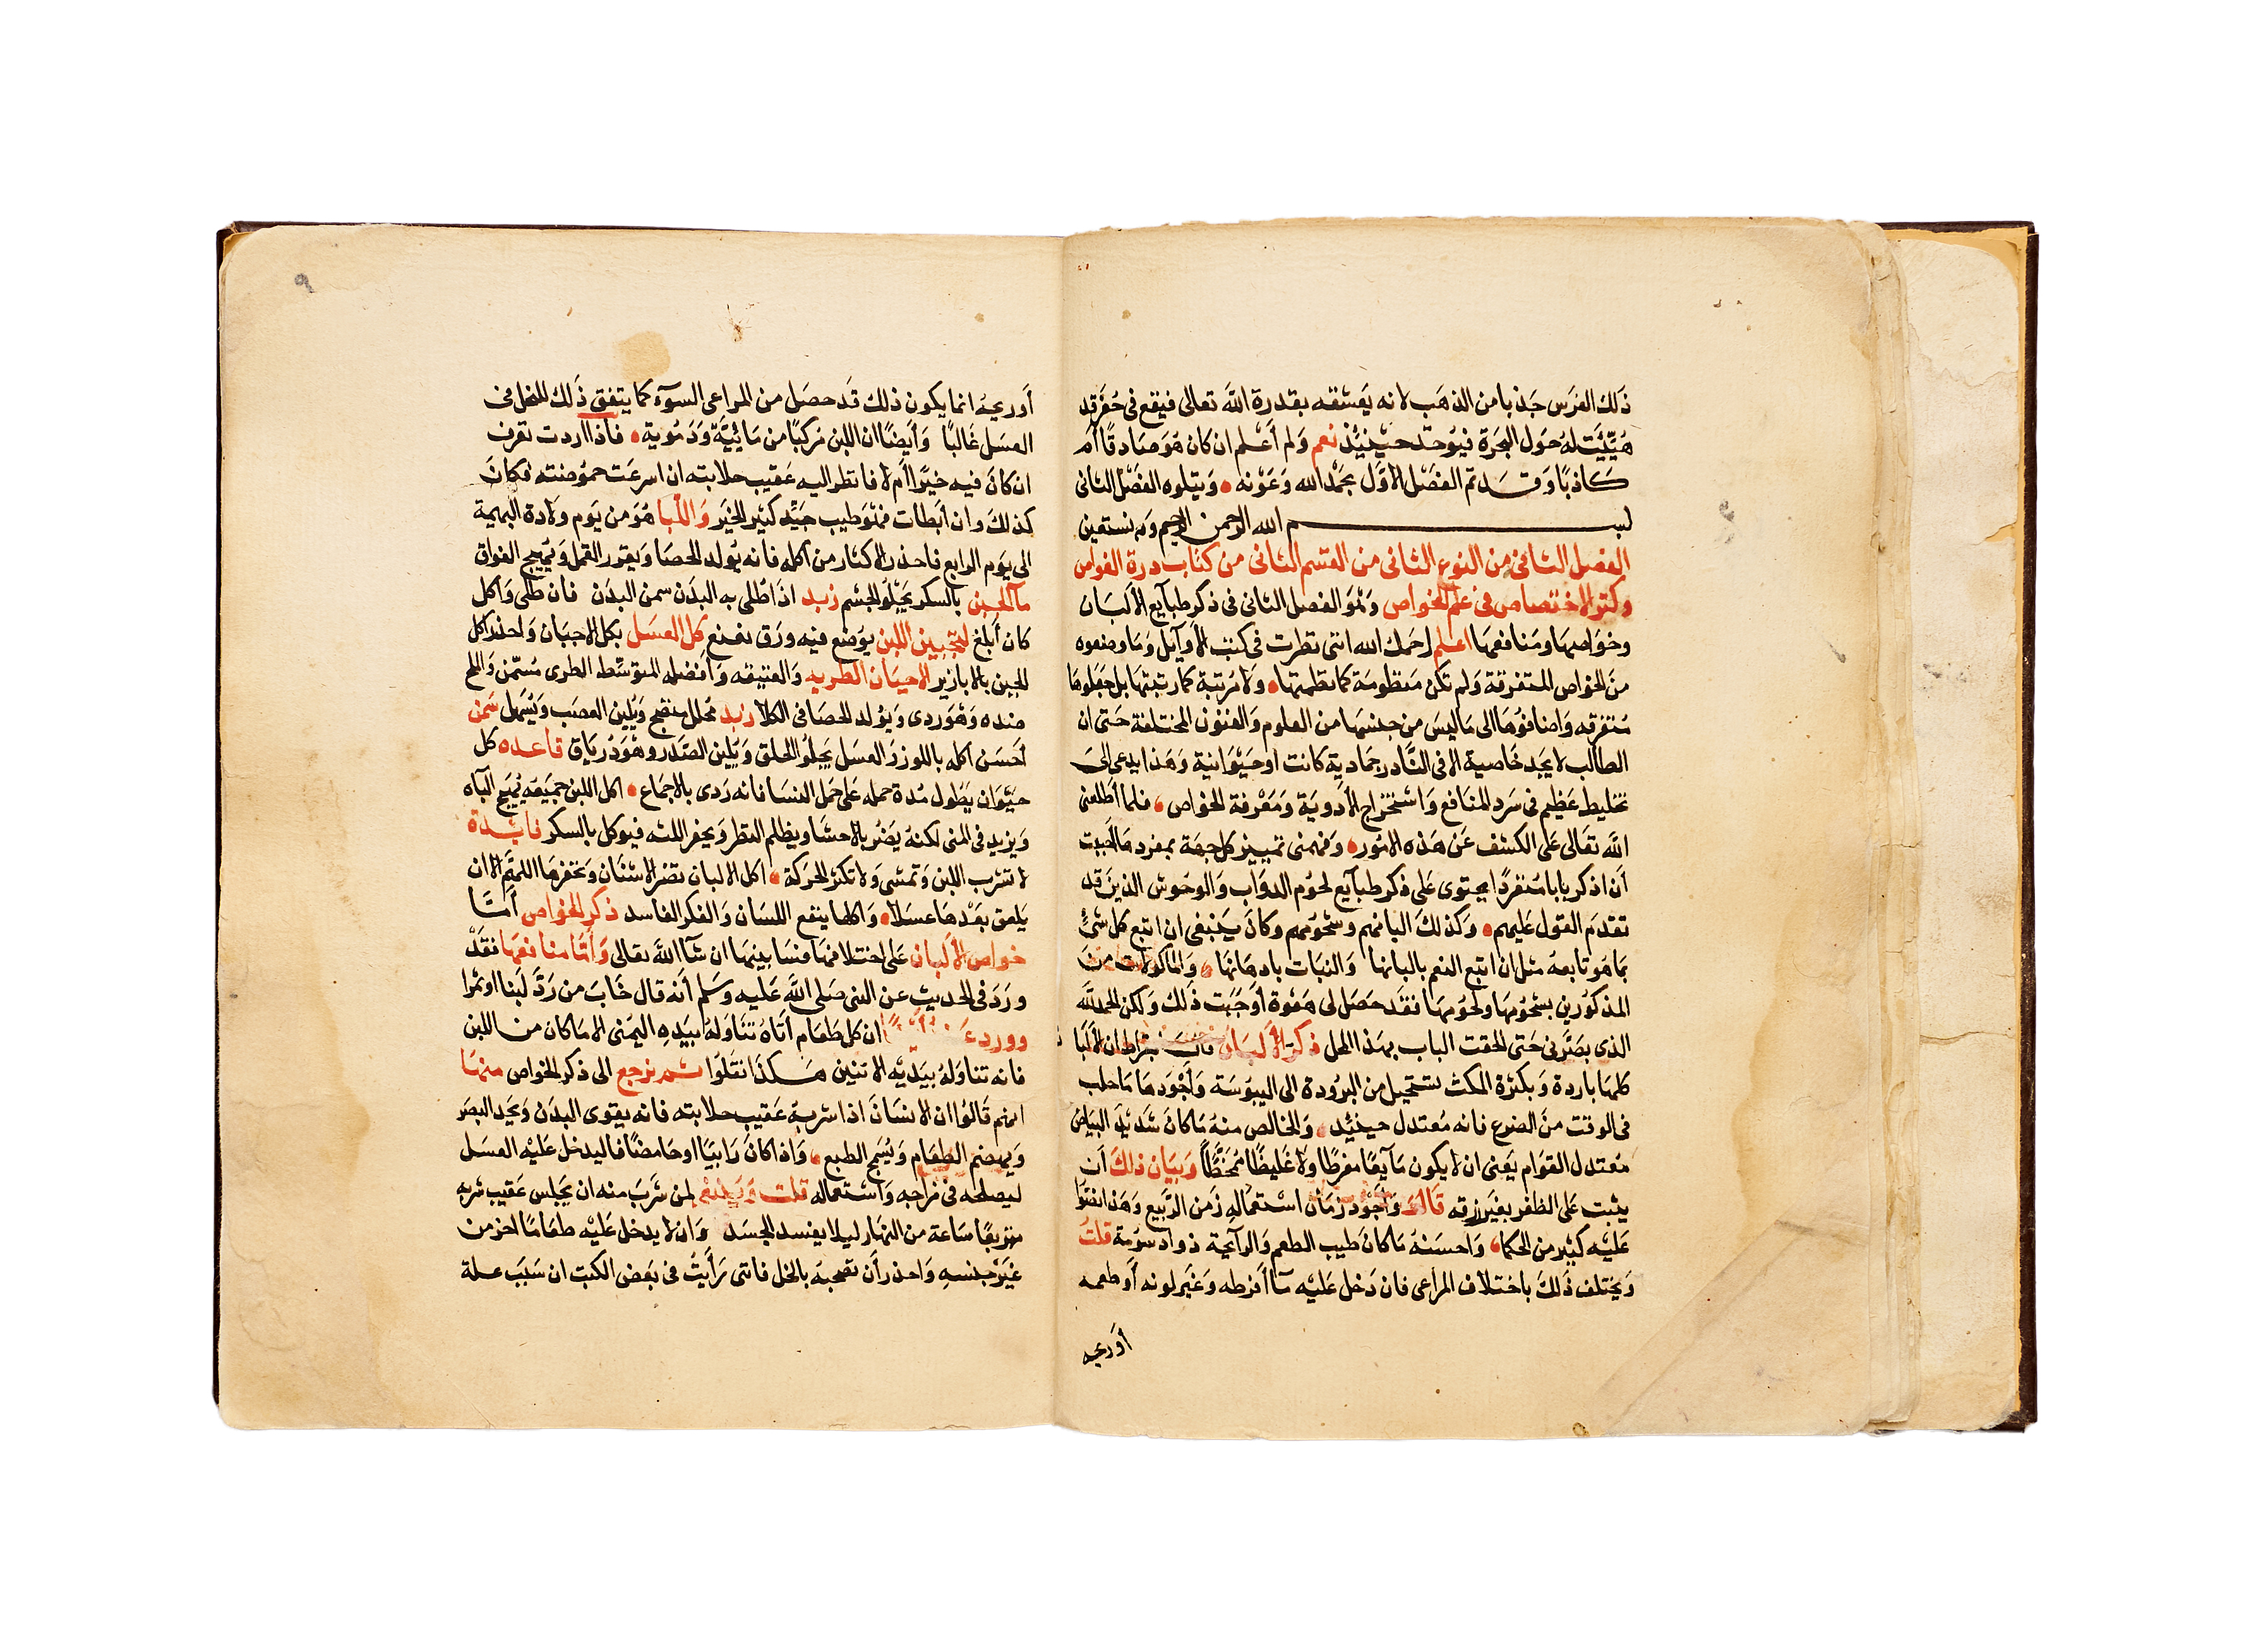 ذلك الفرس جذبا من الذهب لانه يعشقه بقدرة الله تعالى فيقع فى حفرة قد
هيئت له حول البحرة فيوخذ حينئذ نعم ولم أعلم ان كان هو صادقا ام
كاذبا وقد تم الفصل الاول بحمد الله وعونه ويتلوه الفصل الثانى
بسم الله الرحمن الرحيم وبه نستعين
الفصل الثانى من النوع الثانى من القسم الثانى من كتاب درة الغواص
وكنز الاختصاص فى علم الخواص وهو الفصل الثانى فى ذكر طبايع الالبان
وخواصها ومنافعها اعلم رحمك الله اننى نظرت فى كتب الأوايل وما وضعوه
من الخواص المتفرقة ولم تكن منظومة كما نظمتها ولا مرتبة كما رتبتها بل جعلوها
متفرقه واضافوها الى ما ليس من جنسها من العلوم والفنون المختلفة حتى ان
الطالب لا يجد خاصية الا فى النادر جمادية كانت او حيوانية وهذا يدعى الى
تخليط عظيم فى سرد المنافع واستخراج الأدوية ومعرفة الخواص فلما أطلعنى
الله تعالى على الكشف عن هذه الامور وفهمنى تمييز كل جهة بمفردها أحببت
أن اذكر بابا منفردا يحتوى على ذكر طبايع لحوم الدواب والوحوش الذين قد
تقدم القول عليهم وكذلك البانهم وشحومهم وكان ينبغى ان اتبع كل شئ
بما هو تابعه مثل ان اتبع النعم بالبانها والنبات بادهانها والماكولات من
المذكورين بشحومها ولحومها فقد حصل لى هفوة أوجبت ذلك ولكن الحمد لله
الذى بصرنى حتى الحقت الباب بهذا المحل ذكر الألبان قال بقراط ان الألبا
كلها باردة وبكثرة المكث تستحيل من البرودة الى اليبوسة وأجودها ما حلب
فى الوقت من الضرع فانه معتدل حينئذ والخالص منه ما كان شديد البياض
معتدل القوام يعنى ان لا يكون مآيعا مفرطا ولا غليظا وبيان ذلك أن
يثبت على الظفر بغير زرقه قالو وأجود زمان استعماله زمن الربيع وهذا اتفقوا
عليه كثير من الحكما واحسنه ما كان طيب الطعم والرآيحة ذوا دسومة قلت
ويختلف ذلك باختلاف المراعى فان دخل عليه مآ أفرطه وغير لونه أو طعمه
أو ريحه
أو ريحه انما يكون ذلك قد حصل من المراعى السوء كما يتفق ذلك للنحل فى
العسل غالبا وأيضا ان اللبن مركبا من مائية ودموية فاذا اردت تعرف
ان كان فيه خيرا أم لا فانظر اليه عقيب حلابته ان اسرعت حموضته فكان
كذلك وان أبطات فهو طيب جيد كثير الخير واللبا هو من يوم ولادة البهيمة
الى يوم الرابع فاحذر الاكثار من اكله فانه يولد الحصا ويهيج الفواق
مآ الجبن بالسكر يجلو الجسم زبد اذا طلى به البدن سمن البدن فان طلى واكل
كان أبلغ لتجبين اللبن يوضع فيه ورق نعنع كل العسل بكل الاجبان واحذر اكل
الجبن بالابازير الاجبان الطريه والعتيقه وأفضله المتوسط الطرى مسمن والملح
ضده وهو ردى ويولد الحصا فى الكلا زبد محلل منضج ويلين العصب ويسهل سمن
أحسن اكله باللوز والعسل يجلو الحلق ويلين الصدر وهو درياق قاعده كل
حيوان يطول مدة حمله على حمل النسا فانه ردى بالاجماع اكل اللبن جميعه يهيج الباه
ويزيد فى المنى لكنه يضر بالاحشا ويظلم النظر ويحفر اللثه فيوكل بالسكر فايدة
لا تشرب اللبن وتمشى ولا تكثر الحركة اكل الالبان تضر الاسنان وتحفرها اللهم الا ان
يلعق بعدها عسلا واكلها ينفع اللسان والفكر الفاسد ذكر الخواص أما
خواص الألبان على اختلافها فسابينها ان شآ الله تعالى وأما منافعها فقد
ورد فى الحديث عن النبى صلى الله عليه وسلم أنه قال خاب من رد لبنا او تمرا
وورد ان كل طعام أتاه تناوله بيده اليمنى الا ما كان من اللبن
فانه تناوله بيديه الاثنين هكذا نقلوا ثم نرجع الى ذكر الخواص منها
انهم قالوا ان الانسان اذا شربه عقيب حلابته فانه يقوى البدن ويحد البصر
ويهضم الطعام الطبع واذا كان رايبا او حامضا فاليدخل عليه العسل
ليصلحه فى مزاجه واستعماله قلت لمن شرب منه ان يجلس عقيب شربه
ساعة من النهار ليلا يفسد الجسد وان لا يدخل عليه طعاما اخر من
غير جنسه واحذر أن تصحبه بالخل فاننى رأيت فى بعض الكتب ان سبب علة